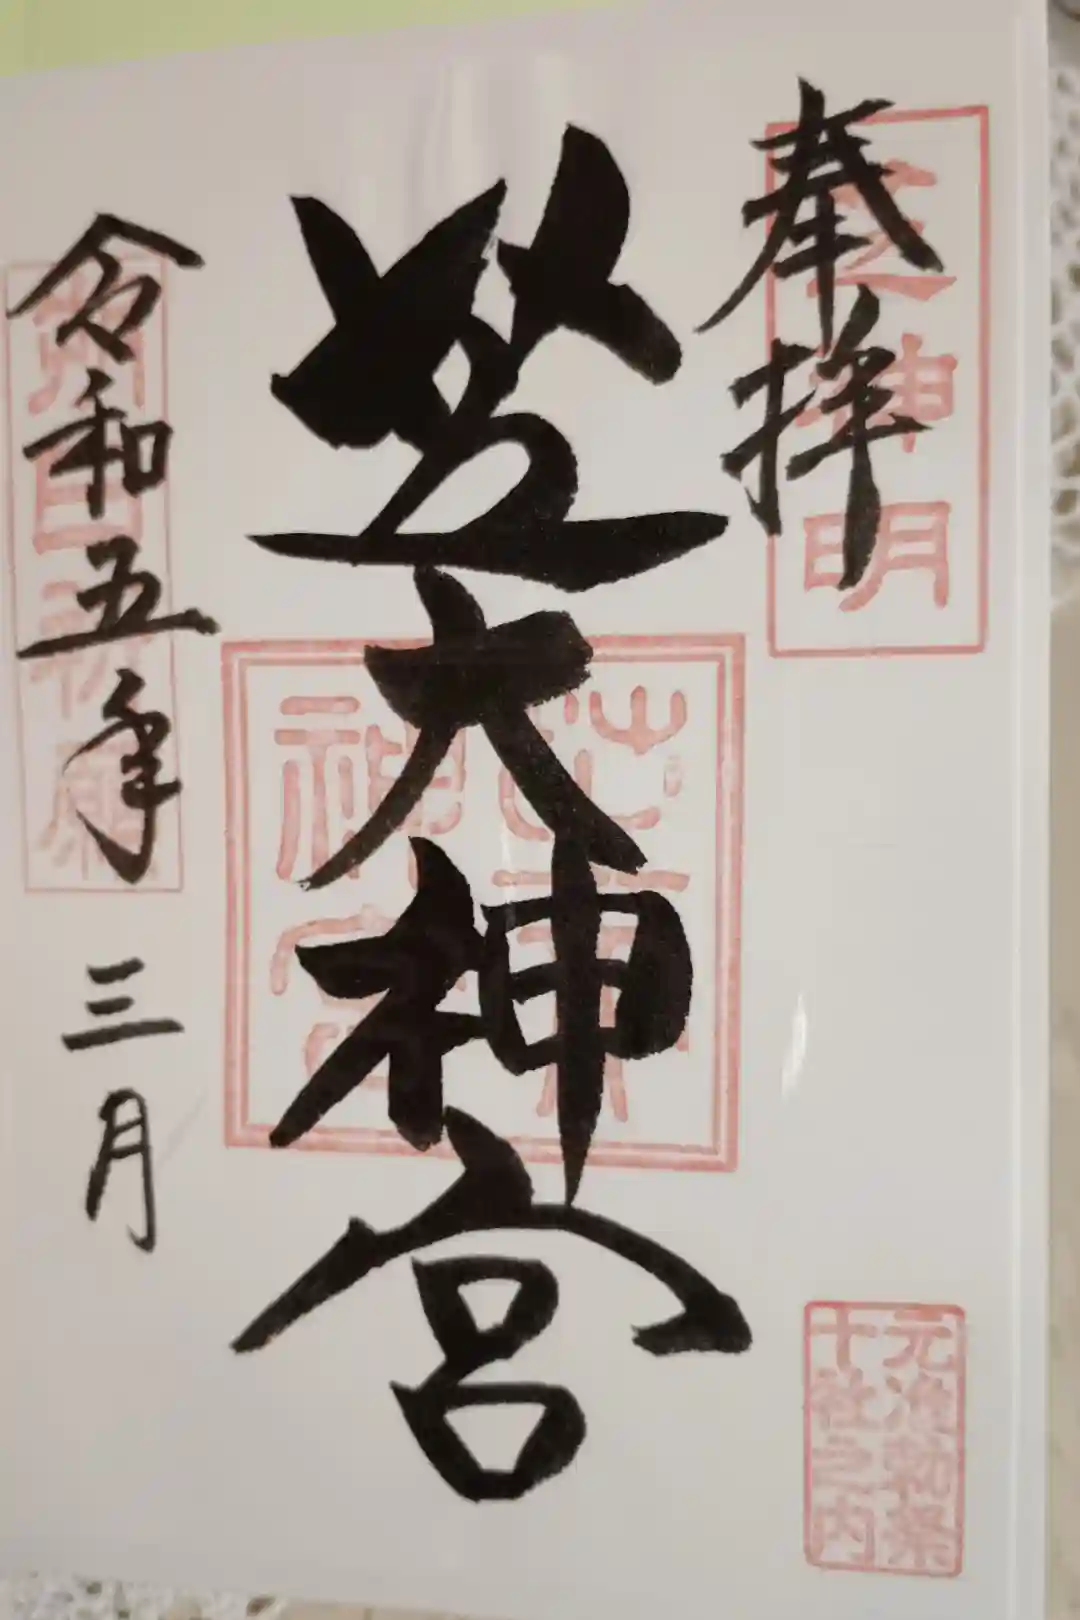 奉拝
芝神明
元准勅祭
十社之内
芝大神宮
令和五年 三月